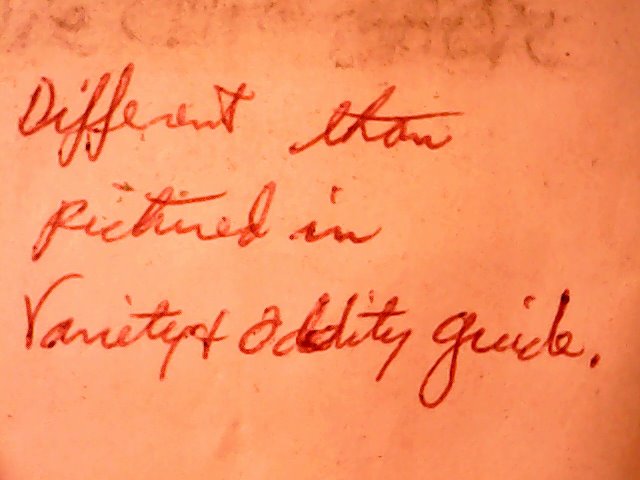 Different than
pictured in
Variety & Oddity guide.